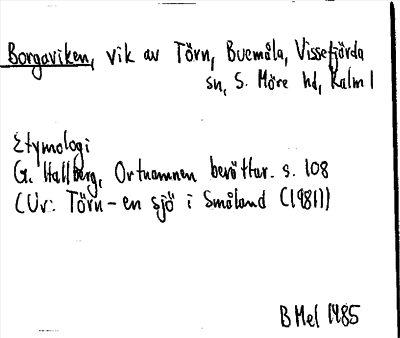 Borgaviken, vik av Törn, Buemåla, Vissefjärda
sn, S. Möre hd, Kalm l
Etymologi
G. Hallberg, Ortnamnen berättar. s. 108
(Ur: Törn - en sjö i Småland (1981))
BMel 1985